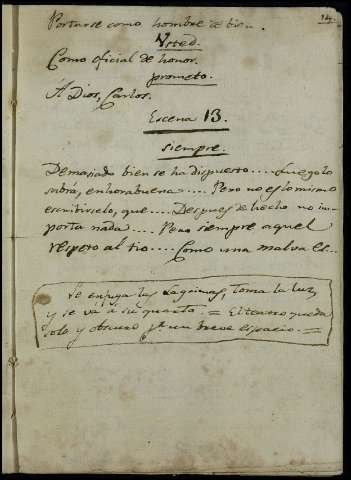 34.
Portarse como hombre de bien.
Usted.
Como oficial de honor.
prometo.
A Dios, Carlos.
Escena 13.
siempre.
Demasiado bien se ha dispuesto.... Luego lo
sabrá, enhorabuena.... Pero no es lo mismo
escribirselo, que.... Despues de hecho no im-
porta nada.... Pero siempre aquel
respeto al tio.... Como una malva es...
Se enjuga las lagrimas, toma la luz,
y se vá a su quarto. = El teatro queda
solo y obscuro pr. un breve espacio. =